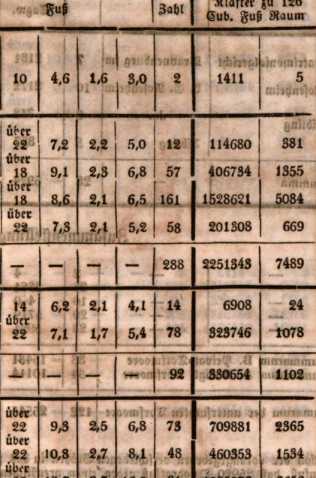 Klafter zu 126
Fuß Zahl Cub. Fuß Raum
10 4,6 1,6 3,0 2 1411 5
über
22 7,2 2,2 5,0 12 114680 381
über
18 9,1 2,3 6,8 57 406734 1355
über
18 8,6 2,1 6,5 161 1528621 5084
über
22 7,3 2,1 5,2 58 201308 669
— — — — 288 2251343 7489
14 6,2 2,1 4,1 14 6908 24
über
22 7,1 1,7 5,4 78 323746 1078
— — — — 92 330654 1102
über
22 9,3 2,5 6,8 73 709881 2365
über
22 10,8 2,7 8,1 48 460353 1534
über